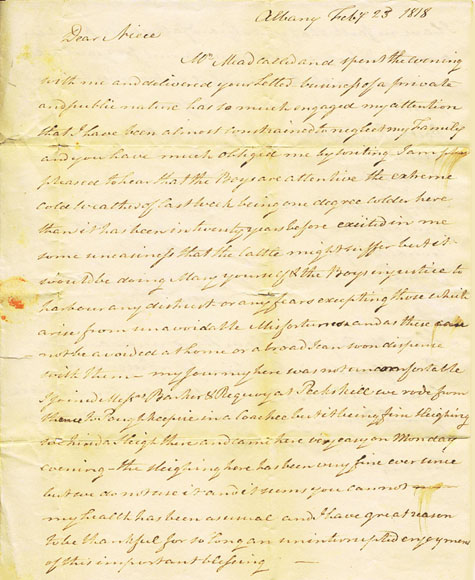 Albany Feby 23 1818
Dear Niece
Mr. Mead called and spent the evening
with me and delivered your letter business of a private
and public nature has so much engaged my attention
that I have been almost constrained to neglect my Family
and you have much obliged me by writing I am
pleased to hear that the Boys are attentive the extreme
cold weather of last week being one degree colder here
than it has been in twenty years before excited in me
some uneasiness that the cattle might suffer but it
would be doing Mary yourself & the Boys injustice to
harbour any distrust or any fears excepting those which
arise from unavoidable Misfortunes and as these can
not be avoided at home or abroad I can soon dispense
with them — my Journey here was not uncomfortable
I joined Messrs Barker & at Peekskill we rode from
thence to Poughkeepsie in a Coachee but it being fine sleighing
we hired a Sleigh there and came here very easy on Monday
evening — the sleighing here has been very fine ever since
but we do not use it and it seems you cannot
my health has been as usual and I have great reason
to be thankful for so long an uninterrupted enjoyment
of this important blessing —